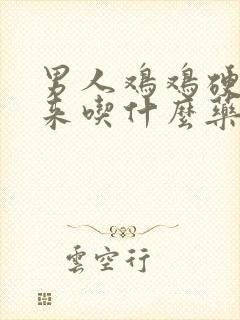 男人鸡鸡硬
来喫什麼藥
雲空行